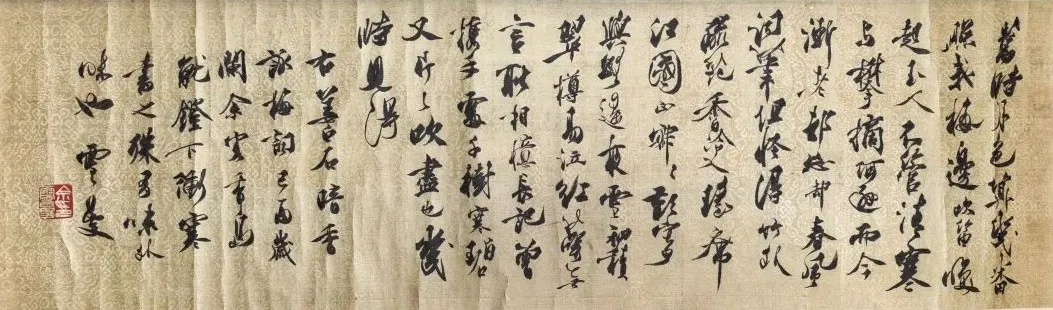 舊時月色算幾番
照我梅邊吹笛喚
起玉人不管清寒
与攀摘何遜而今
漸老都忘却春風
詞筆但怪得竹外
疏花香冷入瑤席
江國正寂〻歎寄
與路遙夜雪初積
翠樽易泣紅萼無
言耿相憶長記曾
攜手處千樹寒碧
又片〻吹盡也幾
時見得
右姜白石暗香
詠梅詞己酉歲
余客青島
燈下衝寒
書之殊有味外
味也